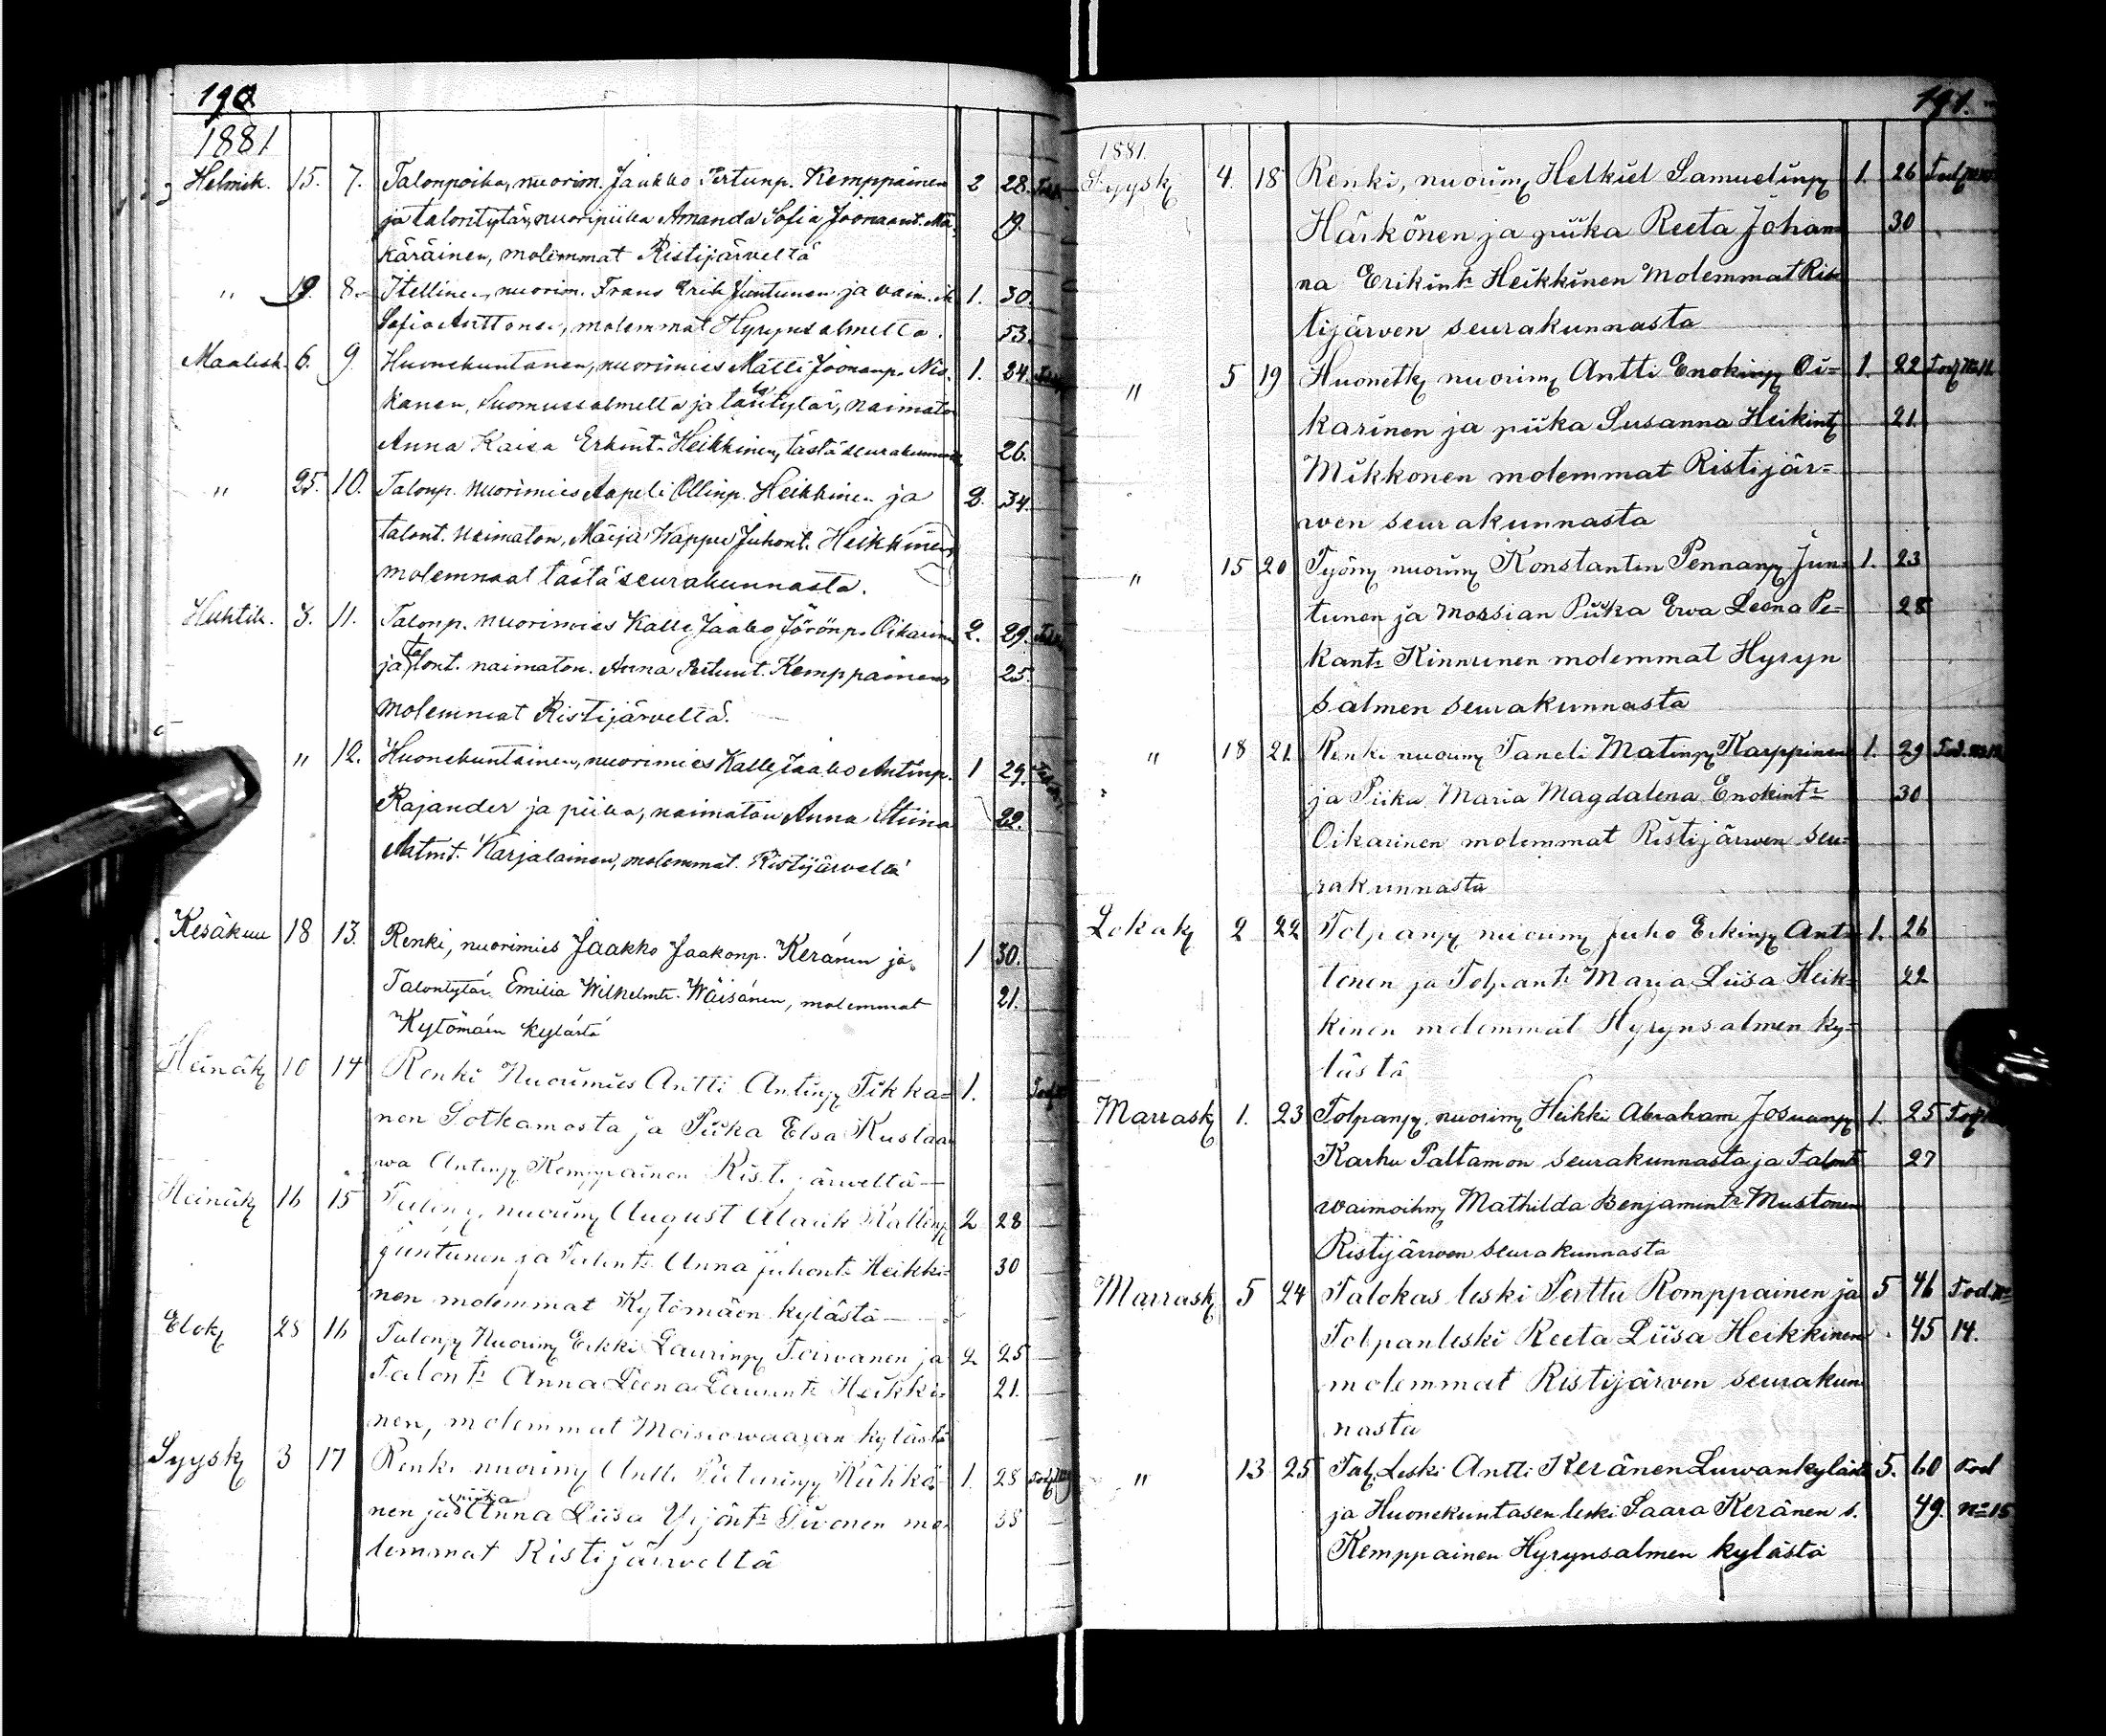 190
1881
Helmik. 15. 7. Talonpoika, nuorim. Jaakko Pertunp. Kemppainen 2 28.
ja talontytär, nuoripiika Amanda Sofia Joonaant. Mä- 19.
käräinen, molemmat Ristijärveltä
" 19. 8. Itellinen, nuorim. Frans Erik Juntunen ja vaim. 1. 30.
Sofia Anttonen, molemmat Hyrynsalmelta. 53.
Maalisk. 6. 9. Huonekuntanen, nuorimies Matti Joonanp. Nis- 1. 34.
kanen, Suomussalmelta ja talontytär, naimaton
Anna Kaisa Erkint. Heikkinen, tästä seurakunnasta 26.
" 25. 10. Talonp. nuorimies Aapeli Ollinp. Heikkinen ja 2. 34.
talont. naimaton, Maija Wappu Juhont. Heikkinen
molemmat tästä seurakunnasta.
Huhtik. 3. 11. Talonp. nuorimies Kalle Jaako Jörönp. Oikarinen 2. 29.
ja talont. naimaton. Anna Pertunt. Kemppainen 25.
molemmat Ristijärveltä.
" 12. Huonekuntainen, nuorimies Kalle Jaako Antinp. 1 29.
Rajander ja piika, naimaton Anna Stiina 22.
Matint. Karjalainen, molemmat Ristijärveltä
Kesäkuu 18 13. Renki, nuorimies Jaakko Jaakonp. Keränen ja 1 30.
Talontytär Emilia Wilhelmt. Wäisänen, molemmat 21.
Kytömäen kylästä
Heinäk 10 14 Renki Nuorimies Antti Antinp Tikka= 1.
nen Sotkamosta ja Piika Elsa Kustaa
wa Antinp Kemppainen Ristijärveltä —
Heinäk 16 15 Talonp. nuorim August Alarik Kallenp 2 28
Juntunen ja Talont: Anna Juhont: Heikki= 30
nen molemmat Kytömäen kylästä —
Elok 28 16 Talonp Nuorim Erkki Laurinp Toivanen ja 2 25
Talont: Anna Leena Laurint: Heikki= 21.
nen, molemmat Moisiowaaran kylästä
Syysk 3 17 Renki nuorim Antti Pieturinp Kähkö- 1. 28
nen ja piika Anna Liisa Yrjönt: Siwonen mo- 38
lemmat Ristijärveltä
191.
1881.
Syysk 4. 18 Renki, nuorim Helkiel Samuelinp 1. 26
Härkönen ja piika Reeta Johan= 30
na Erikint: Heikkinen Molemmat Ris=
tijärven seurakunnasta
" 5 19 Huonetk nuorim Antti Enokinp Oi= 1. 22
karinen ja piika Susanna Heikint 21.
Mikkonen molemmat Ristijär=
wen seurakunnasta
" 15 20 Työm nuorim Konstantin Pennanp Jun= 1. 23
tunen ja Morsian Piika Ewa Leena Pe= 28
kant: Kinnunen molemmat Hyryn
salmen seurakunnasta
" 18 21. Renki nuorim Taneli Matinp Karppinen 1. 29
ja Piika Maria Magdalena Enokint= 30
Oikarinen molemmat Ristijärwen seu=
rakunnasta
Lokak 2 22 Tolpanp nuorim Juho Erkinp Ant= 1. 26
tonen ja Tolpant: Maria Liisa Heik= 22
kinen molemmat Hyrynsalmen ky=
lästä
Marrask 1. 23 Tolpanp. nuorim Heikki Abraham Josuanp 1. 25
Karhu Paltamon seurakunnasta ja Talont 27
waimoihm Mathilda Benjamint: Mustonen
Ristijärwen seurakunnasta
Marrask 5 24 Talokas leski Perttu Romppainen ja 5 46 Tod. No
Tolpanleski Reeta Liisa Heikkinen 45 14.
molemmat Ristijärven seurakun
nasta
" 13 25 Tal. Leski Antti Keränen Luwankylästä 5. 60 Tod
ja Huonekuntasen leski Saara Keränen s. 49. No 15
Kemppainen Hyrynsalmen kylästä